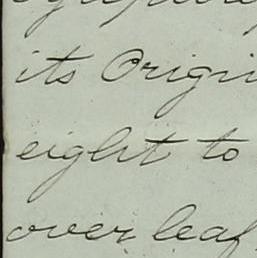 its Origi
eight to
over leaf